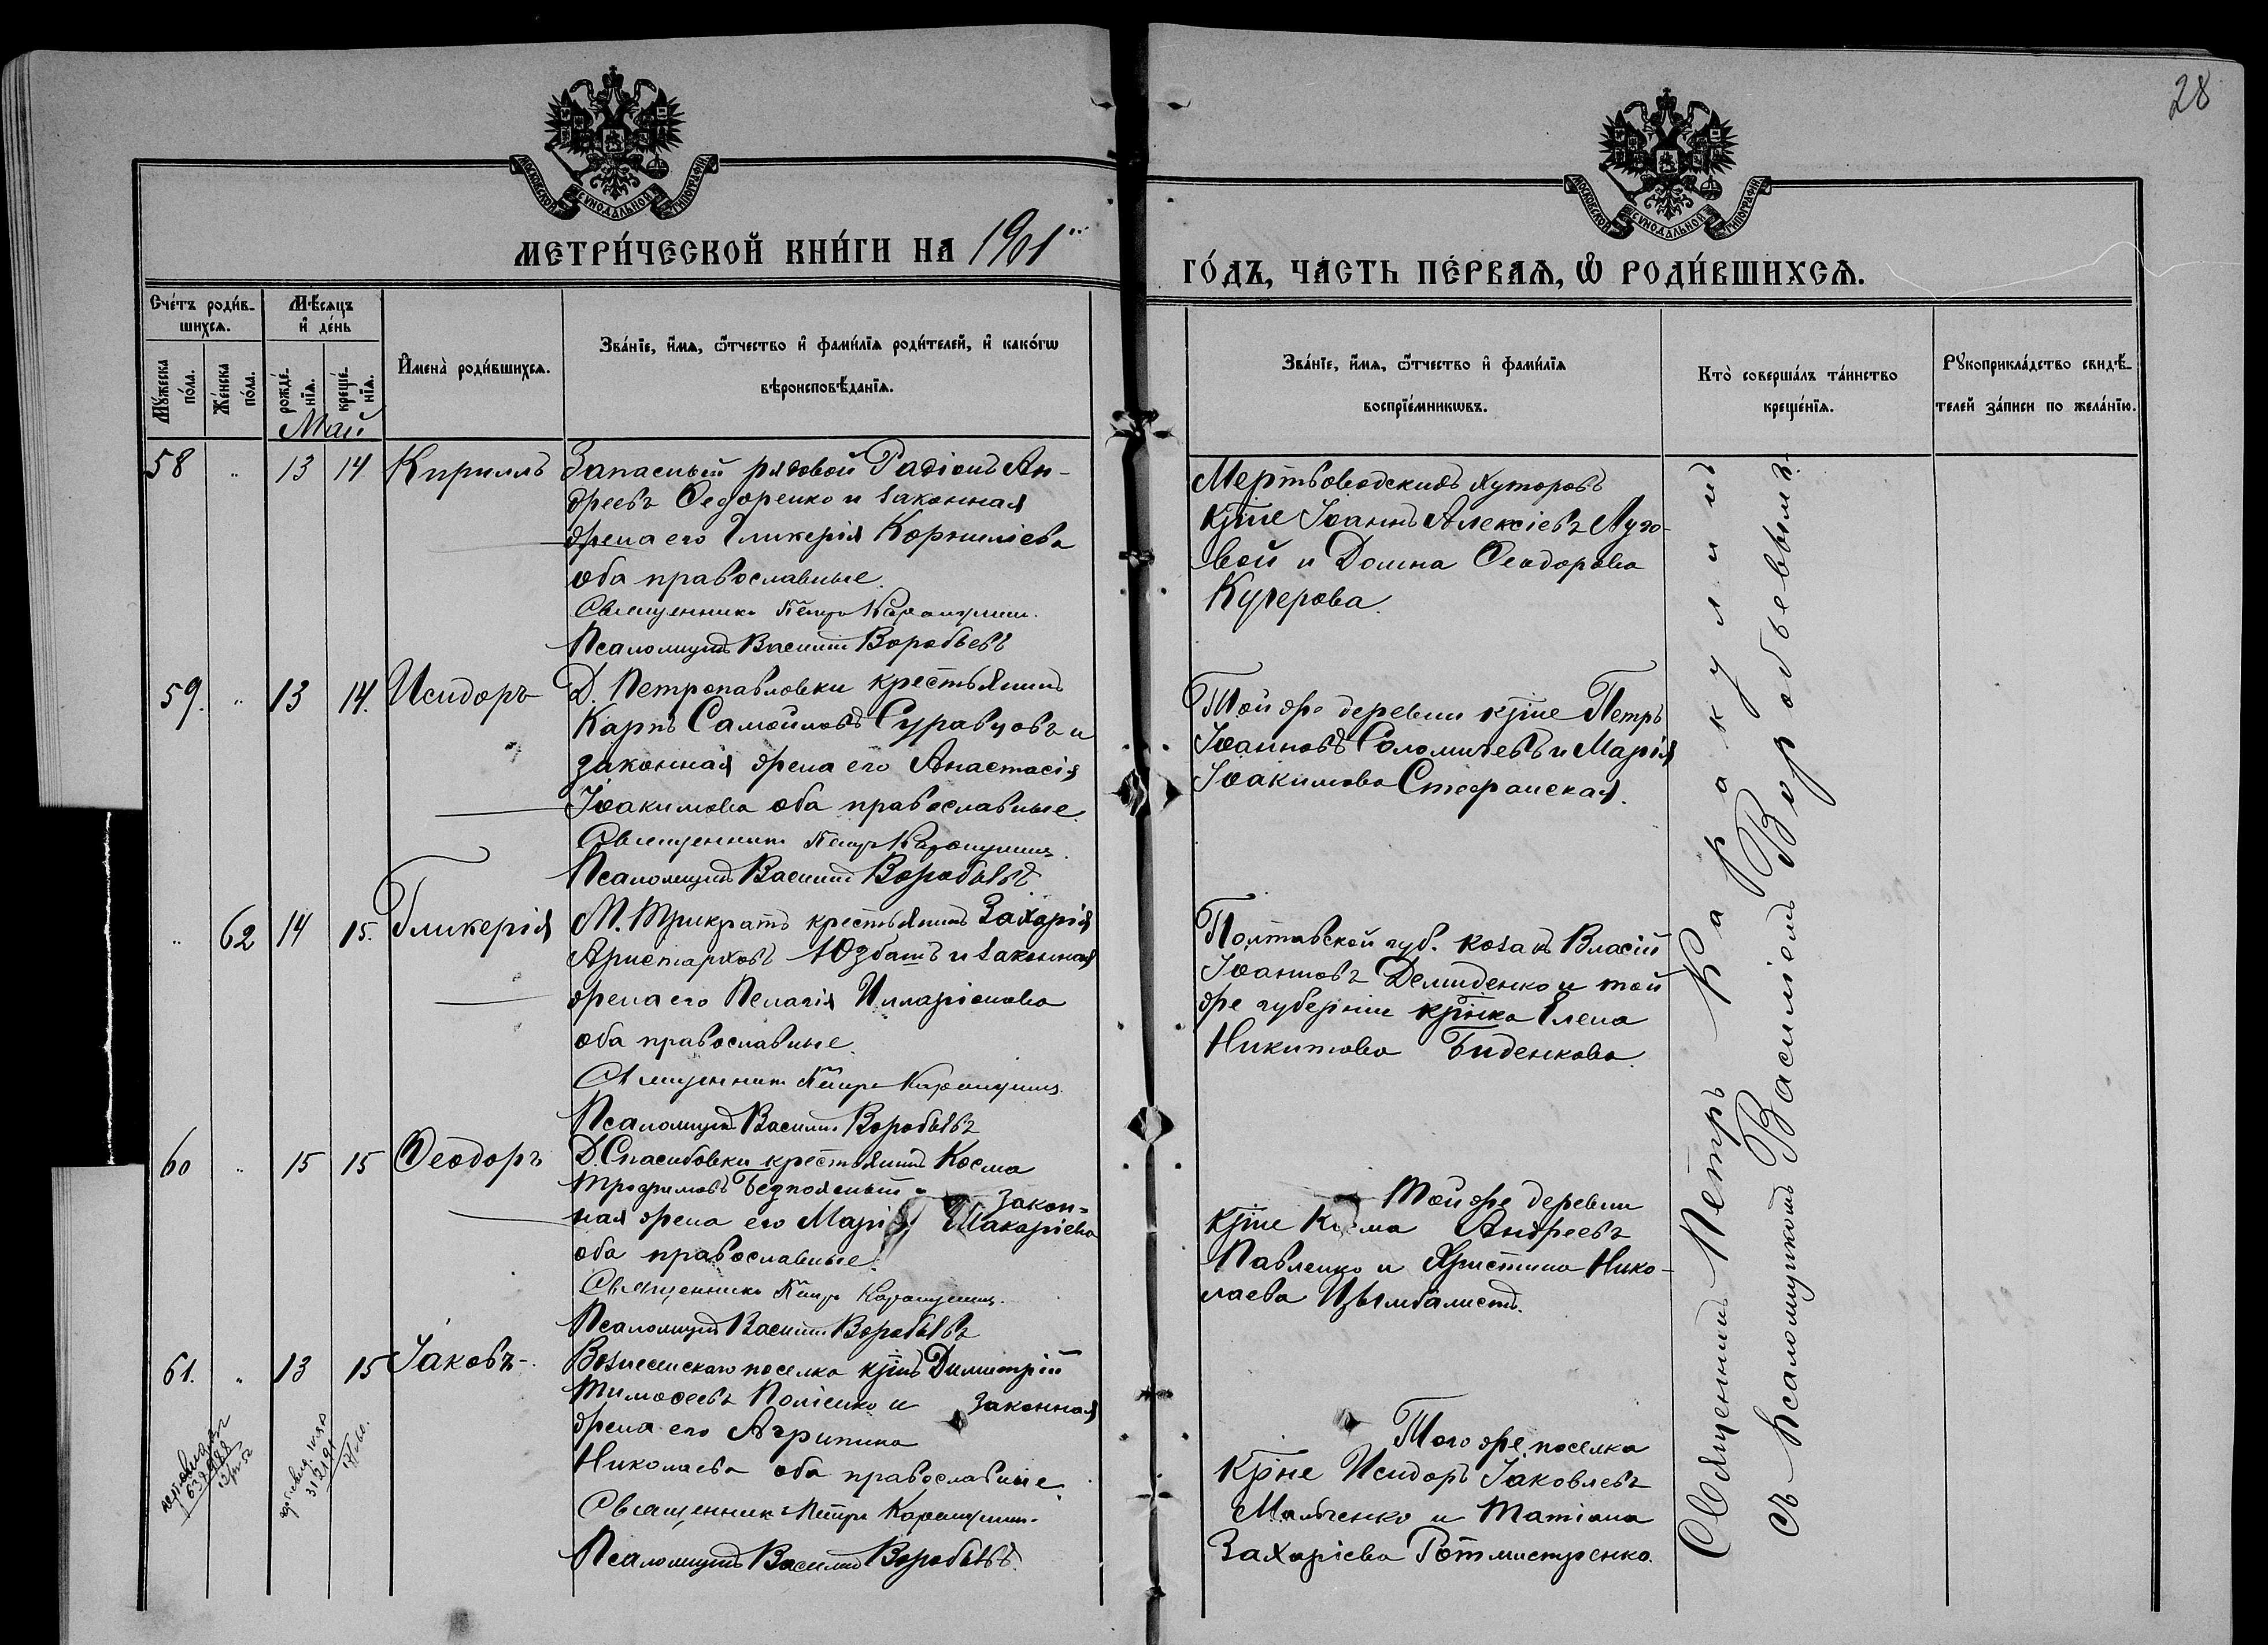 28
МОСКОВСКОЙ СѴНОДАЛЬНОЙ ТИПОГРАФІИ
МОСКОВСКОЙ СѴНОДАЛЬНОЙ ТИПОГРАФІИ
МЕТРИ́ЧЕСКОЙ КНИ́ГИ НА 1901
ГО́ДЪ, ЧА́СТЬ ПЕ́РВАѦ, Ѽ РОДИ́ВШИХСѦ.
Сче́тъ роди́в-
шихсѧ.
Мѣ́сѧцъ
и҆ де́нь
Мꙋ́жеска
по́ла.
Же́нска
по́ла.
рожде́-
нїѧ.
креще́-
нїѧ.
И҆мена̀ роди́вшихсѧ.
Зва́нїе, и҆́мѧ, ѻ҆́тчество и҆ фами́лїѧ роди́телей, и҆ како́гѡ
вѣроисповѣ́данїѧ.
Зва́нїе, и҆́мѧ, ѻ҆́тчество и҆ фами́лїѧ
воспрїе́мникѡвъ.
Кто̀ соверша́лъ та́инство
креще́нїѧ.
Рꙋкоприкла́дство свидѣ́-
телей за́писи по жела́нїю.
Май
58 " 13 14 Кириллъ
Запасный рядовой Радіонъ Ан-
дреевъ Ѳедоренко и законная
жена его Гликерія Корниліева
оба православные.
Священникъ Петръ Каракулинъ.
Псаломщикъ Василій Воробьевъ
Мертвоводскихъ хуторовъ
кр̃не Іоаннъ Алексіевъ Луго-
вой и Домна Ѳеодорова
Кучерова.
59. " 13 14. Исидоръ
Д. Петропавловки крестьянинъ
Карпъ Самойловъ Суравцовъ и
законная жена его Анастасія
Іоакимова оба православные.
Священникъ Петръ Каракулинъ.
Псаломщикъ Василій Воробьевъ
Той же деревни кр̃не Петръ
Іоанновъ Соломичевъ и Марія
Іоакимова Стефанская.
" 62 14 15. Гликерія
М. Трикратъ крестьянинъ Захарія
Аристарховъ Юзбашъ и законная
жена его Пелагія Илларіонова
оба православные.
Священникъ Петръ Каракулинъ.
Псаломщикъ Василій Воробьевъ
Полтавской губ. козакъ Власій
Іоанновъ Демиденко и той
же губерніи кр̃нка Елена
Никитова Биденкова.
60 " 15 15 Ѳеодоръ
Д. Спасибовки крестьянинъ Косма
Трофимовъ Безпоясный и закон-
ная жена его Марія Макаріева
оба православные.
Священникъ Петръ Каракулинъ.
Псаломщикъ Василій Воробьевъ
Той же деревни
кр̃не Косма Андреевъ
Павленко и Христина Нико-
лаева Цымбалистъ.
61. " 13 15 Іаковъ
Вознесенскаго поселка кр̃нъ Димитрій
Тимоѳеевъ Поліенко и законная
жена его Агрипина
Николаева оба православные.
Священникъ Петръ Каракулинъ.
Псаломщикъ Василій Воробьевъ.
Того же поселка
кр̃не Исидоръ Іаковлевъ
Мальченко и Татіана
Захаріева Ротмистренко.
Священникъ Петръ Каракулинъ
съ Псаломщикомъ Василіемъ Воробьевымъ.